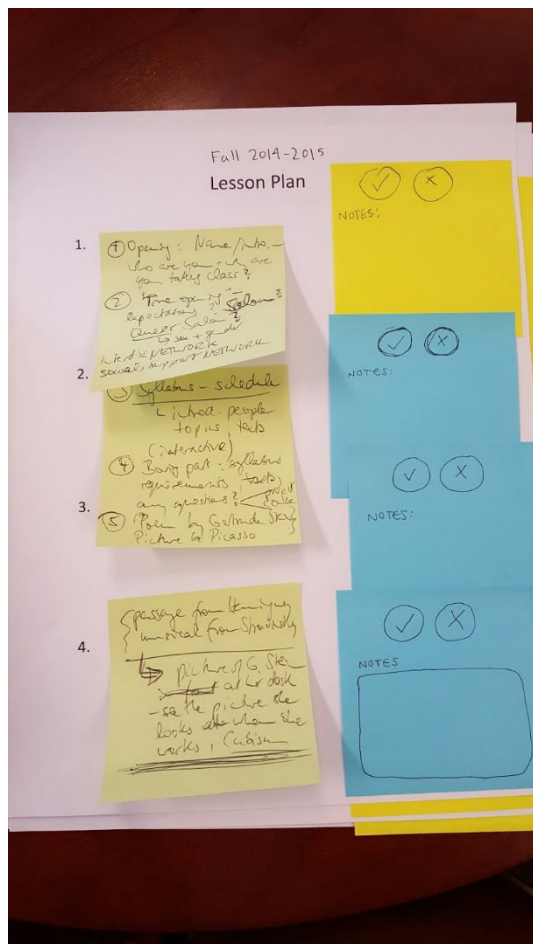 Fall 2014-2015
Lesson Plan
NOTES:
1.
① Opening: Name/intro, –
who are you + why are
you taking class?
② "True opening" –
expectations? Salon?
Queer Salon?
↳ sex + gender
NETWORK
sexual, support NETWORK
2.
NOTES:
③ Syllabus – schedule
introd. people
topics, texts
(interactive)
④ Boring part: syllabus
requirements, texts
any questions?
3.
⑤ Poem by Gertrude Stein
Picture by Picasso
NOTES:
4.
passage from Hemingway
musical from Stravinsky
Picture of G. Stein
at her desk
– see the picture she
looks when she
works, Cubism
NOTES